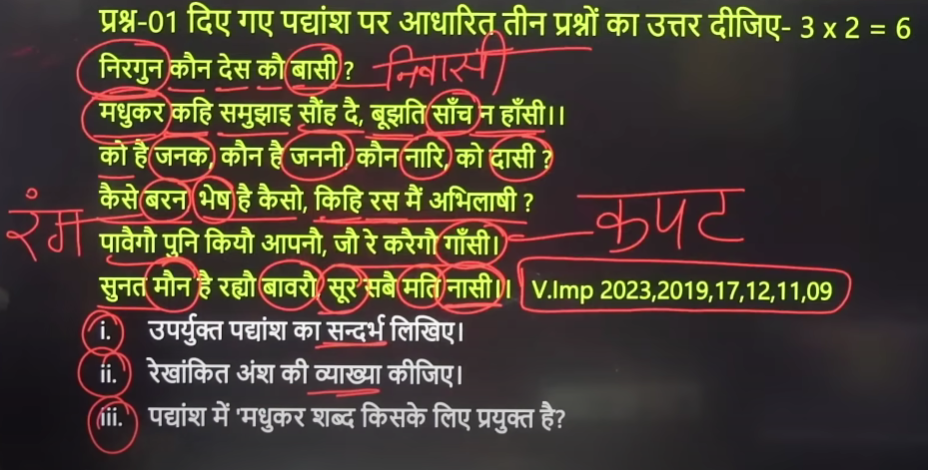 प्रश्न-01 दिए गए पद्यांश पर आधारित तीन प्रश्नों का उत्तर दीजिए- 3 x 2 = 6
निरगुन कौन देस कौ बासी ? निवासी
मधुकर कहि समुझाइ सौंह दै, बूझति साँच न हाँसी।।
को है जनक, कौन है जननी, कौन नारि, को दासी ?
कैसे बरन भेष है कैसो, किहि रस मैं अभिलाषी ?
रंग पावैगौ पुनि कियौ आपनौ, जौ रे करैगौ गाँसी। कपट
सुनत मौन है रह्यौ बावरौ, सूर सबै मति नासी।। V.Imp 2023,2019,17,12,11,09
i. उपर्युक्त पद्यांश का सन्दर्भ लिखिए।
ii. रेखांकित अंश की व्याख्या कीजिए।
iii. पद्यांश में 'मधुकर शब्द किसके लिए प्रयुक्त है?